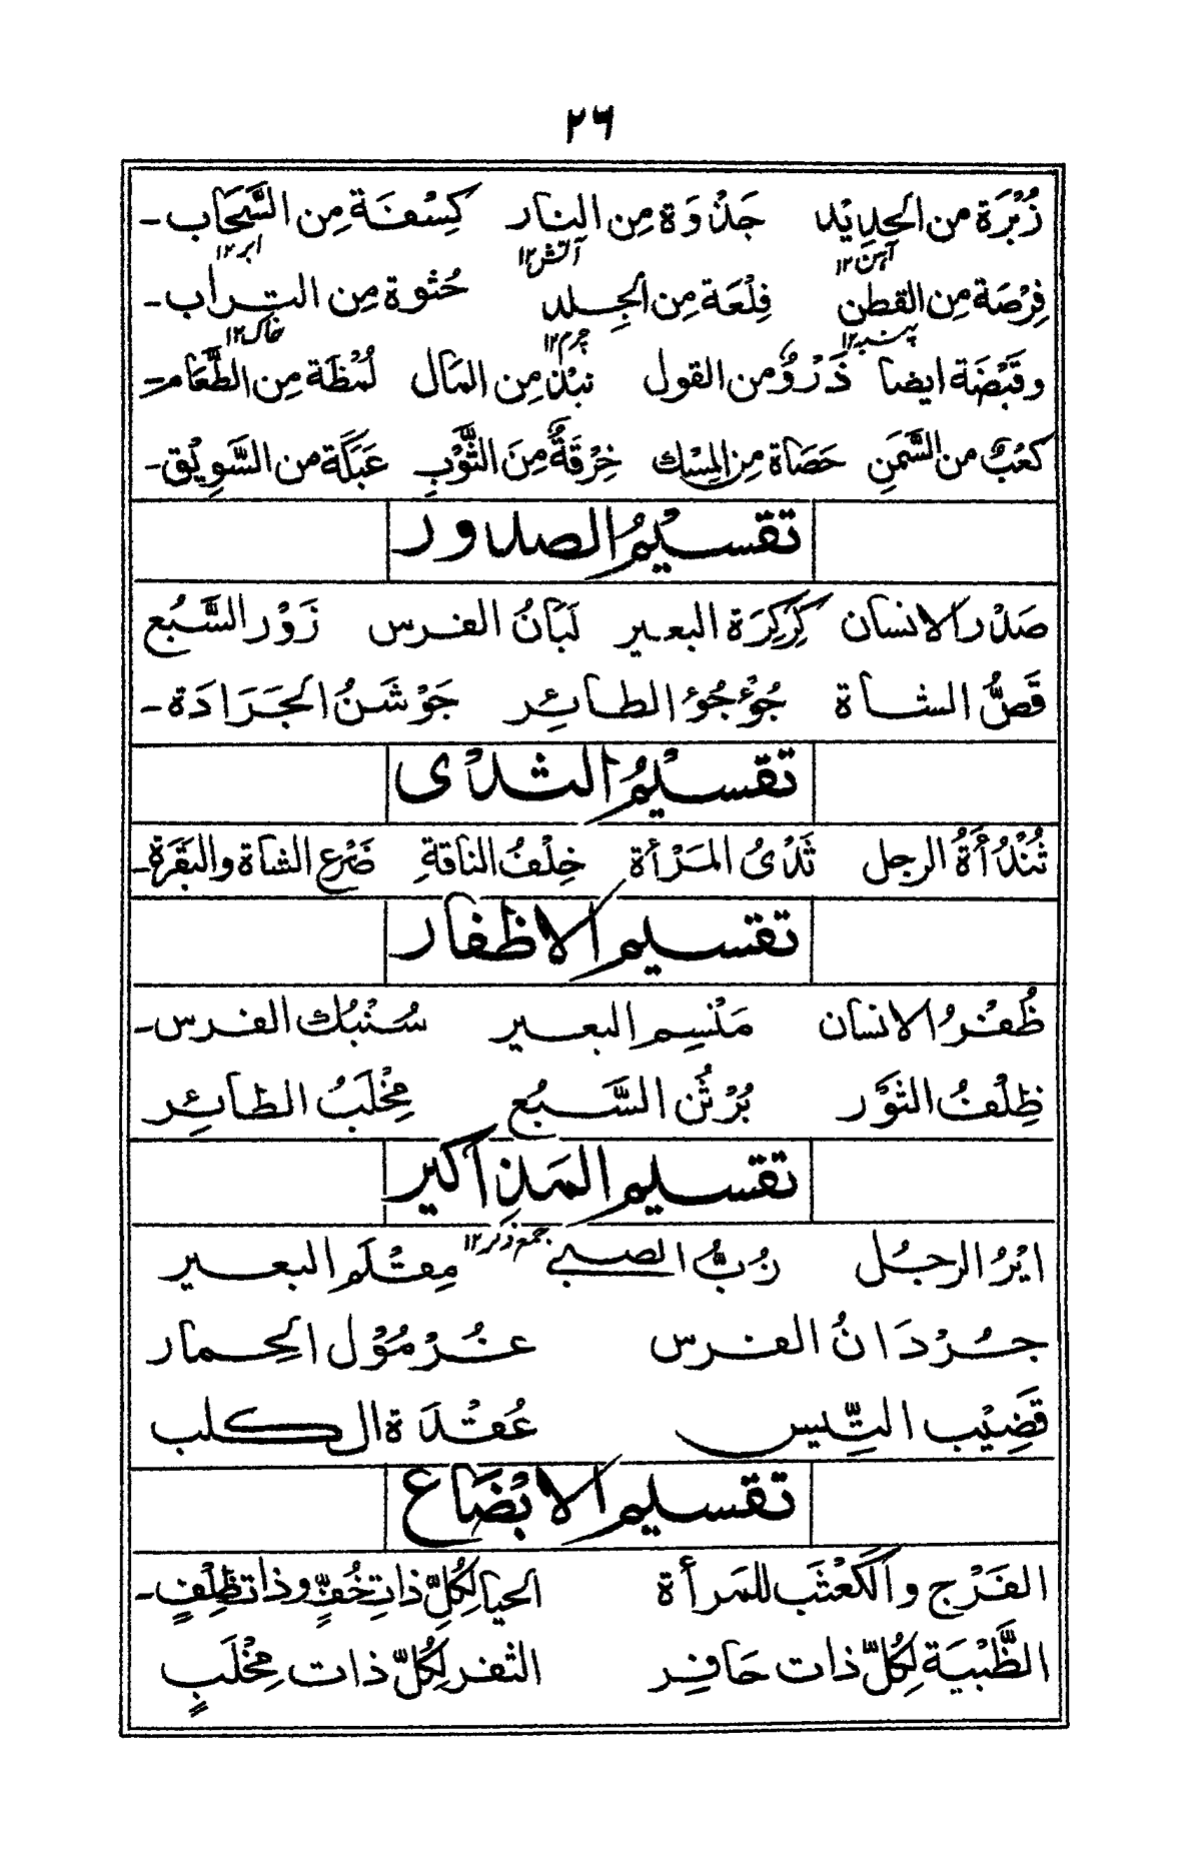 ٢٦
زُبْرَة من الحدِيْد جَذْوَة مِن النار كِسْفَة مِن السَّحَاب۔
آہن١٢ آتش١٢ ابر١٢
فِرْصَة مِن القطن فِلْعَة مِن الجِلد حُثْوة مِن التراب۔
پنبہ١٢ چرم١٢ خاک١٢
وقَبْضَة ايضا ذَرْوٌ من القول نبْذ مِن المَال لُمْظَة مِن الطَّعَام۔
كَعْبٌ من السَّمَنِ حَصَاة مِن المِسْك خِرْقَةٌ مِنَ الثَّوْبِ عَبَكَة من السَّوِيْق۔
تقسيمُ الصدور
صَدْر الانسان كِرْكِرَة البعير لَبَانُ الفرس زَوْر السَّبُع
قَصُّ الشاة جُؤْجُؤ الطائِر جَوْشَنُ الجَرَادَة۔
تقسيمُ الثدْى
ثُنْدُأَةُ الرجل ثَدْىُ المَرْأة خِلْفُ الناقةِ ضَرْع الشاة والبقَرَة۔
تقسيم الاظفار
ظُفْرُ الانسان مَنْسِم البعير سُنْبُك الفرس۔
ظِلْفُ الثوْر بُرْثُن السَّبُع مِخْلَبُ الطائِر
تقسيم المَذاكير
جمع ذكر١٢
ايْرُ الرجُل زُبُّ الصبي مِقْلَم البعير
جُرْدَانُ الفرس غُرْمُوْل الحِمار
قَضِيْب التَّيس عُقْدَة الكلب
تقسيم الابْضَاع
الفَرْج والكَعْثَب للمَرأة الحيا لِكُلِّ ذاتِ خُفٍّ وذات ظِلْفٍ۔
الظَّبْيَة لِكُلِّ ذات حَافِر الثفر لِكُلِّ ذات مِخْلَبٍ